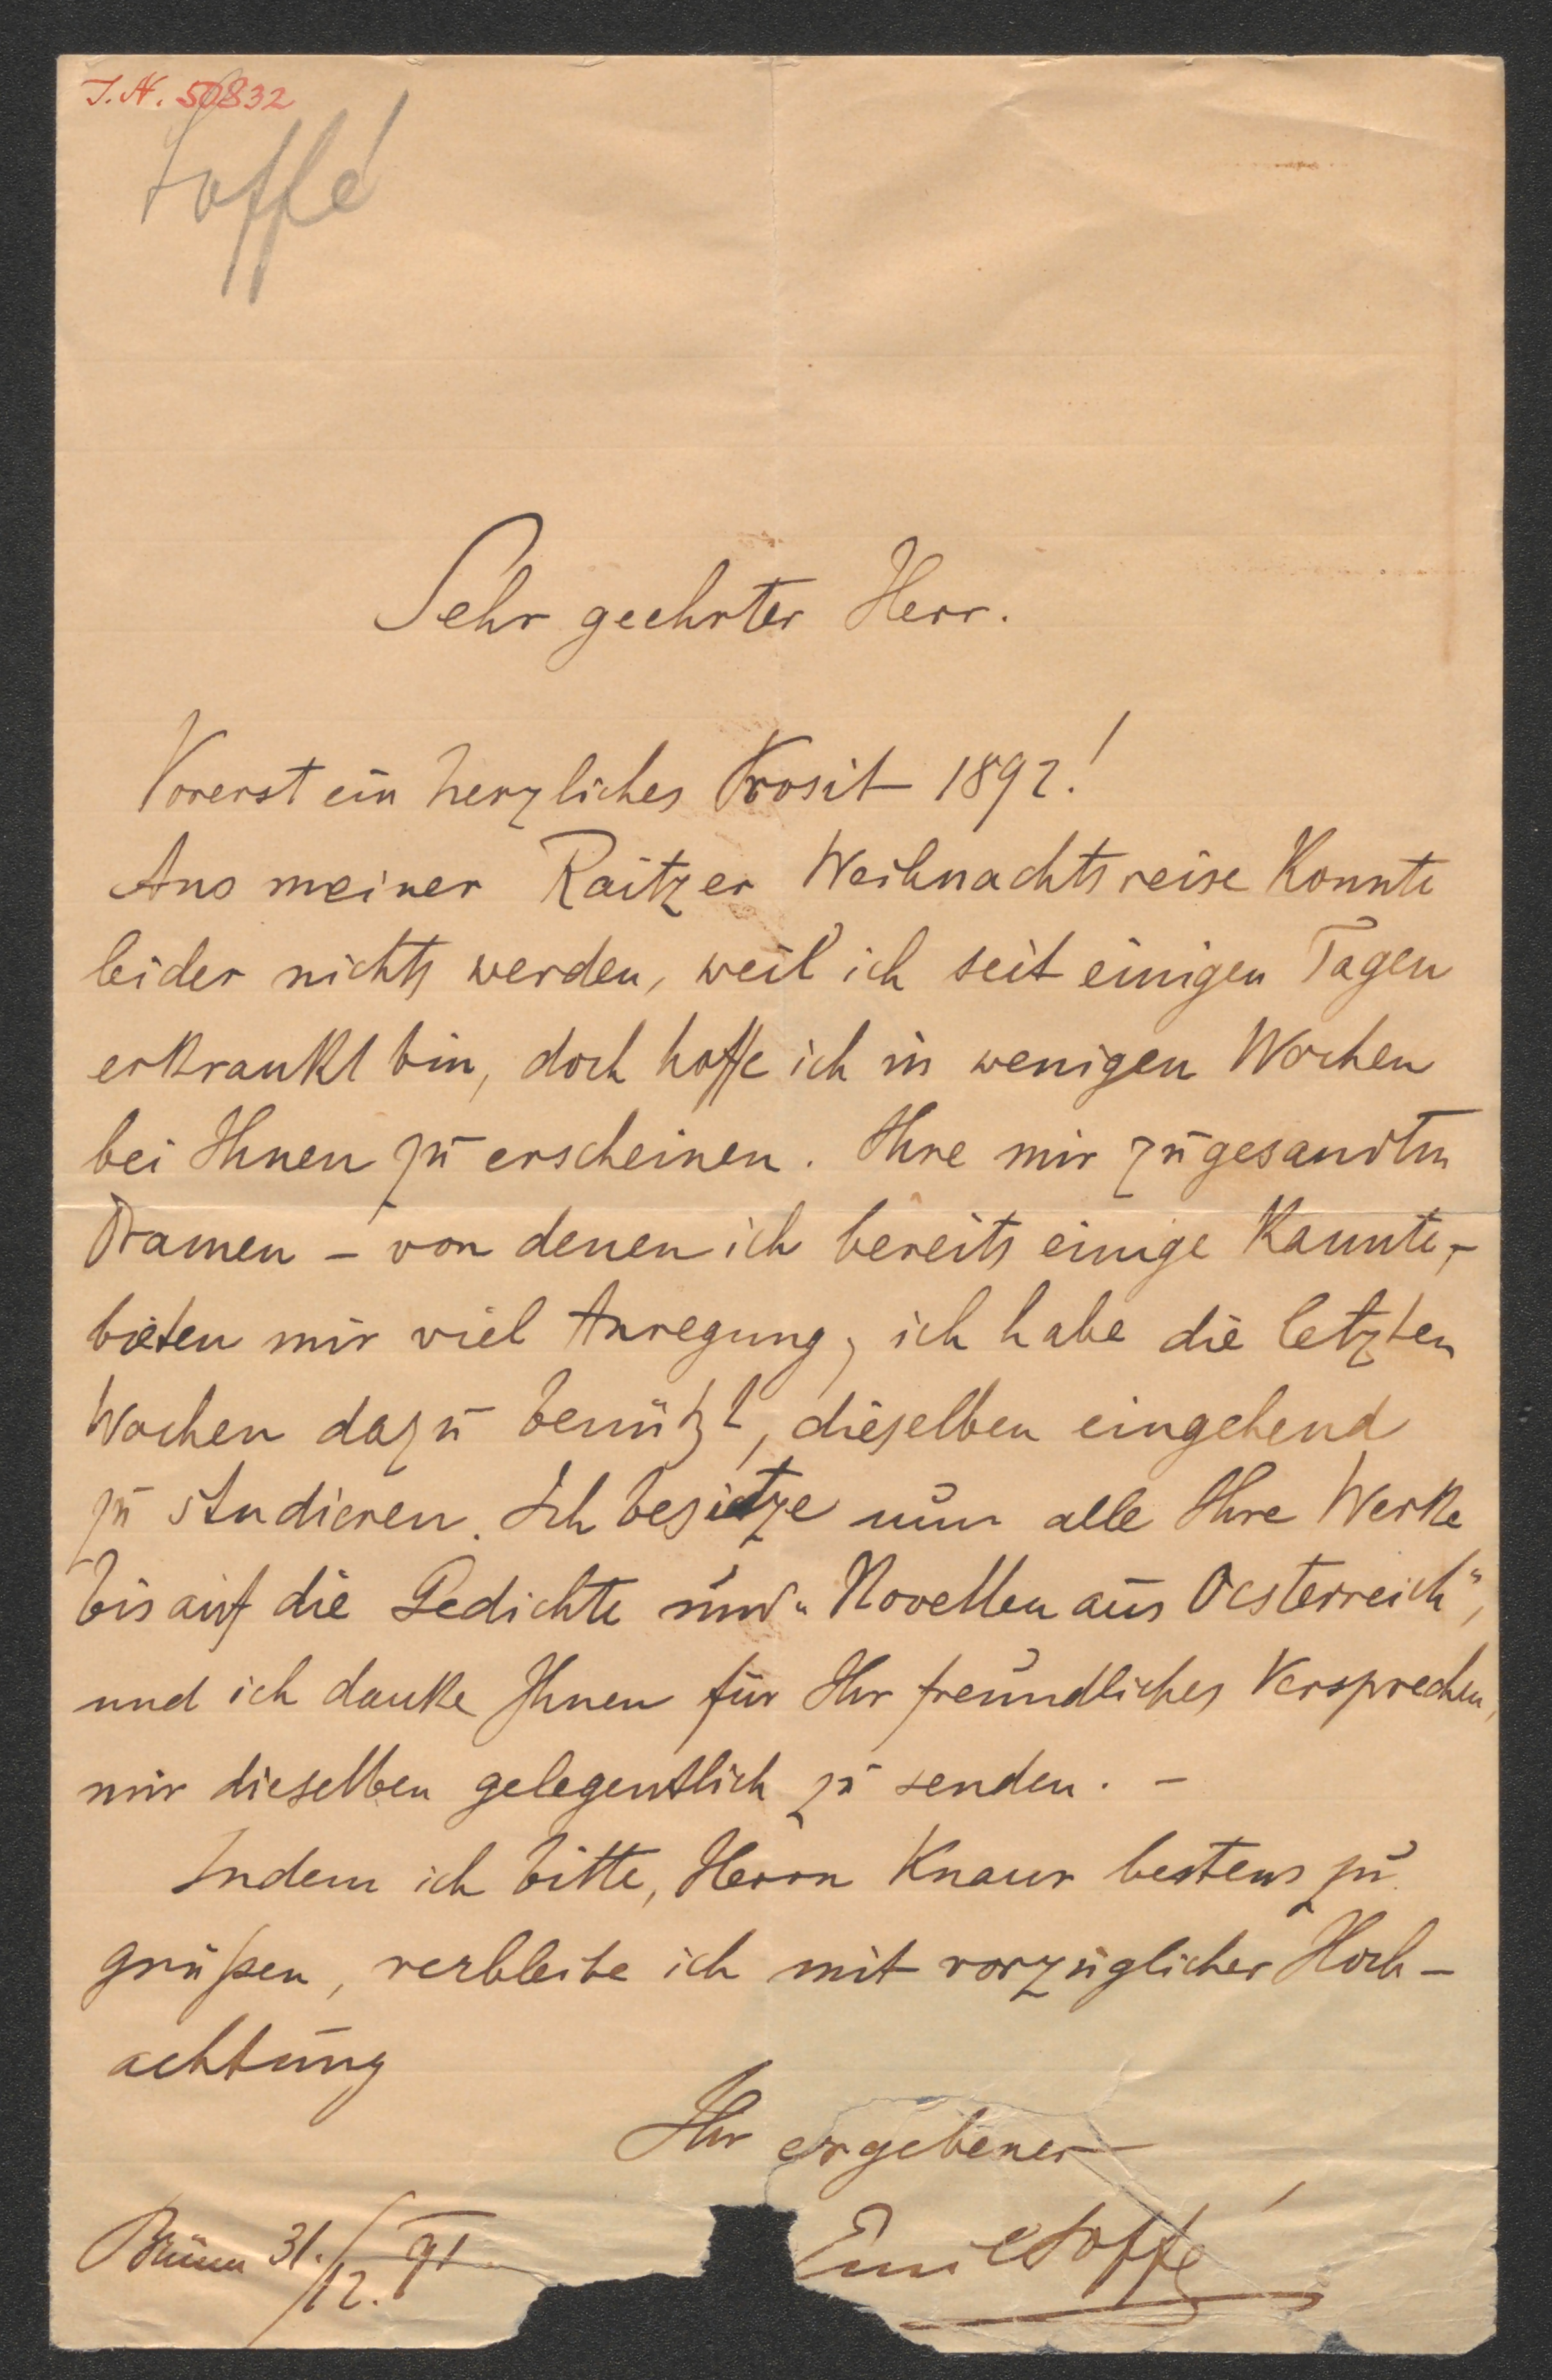 I.N. 50832
Soffé
Sehr geehrter Herr.
Vorerst ein herzliches Prosit 1892!
Aus meiner Raitzer Weihnachtsreise konnte
leider nichts werden, weil ich seit einigen Tagen
erkrankt bin, doch hoffe ich in wenigen Wochen
bei Ihnen zu erscheinen. Ihre mir zugesandten
Dramen – von denen ich bereits einige kannte, –
bieten mir viel Anregung, ich habe die letzten
Wochen dazu benützt, dieselben eingehend
zu studieren. Ich besitze nun alle Ihre Werke
bis auf die Gedichte und „Novellen aus Oesterreich“,
und ich danke Ihnen für Ihr freundliches Versprechen,
mir dieselben gelegentlich zu senden. –
Indem ich bitte, Herrn Knaur bestens zu
grüßen, verbleibe ich mit vorzüglicher Hoch-
achtung
Ihr ergebener
Emil Soffé
Brünn 31./12. 91